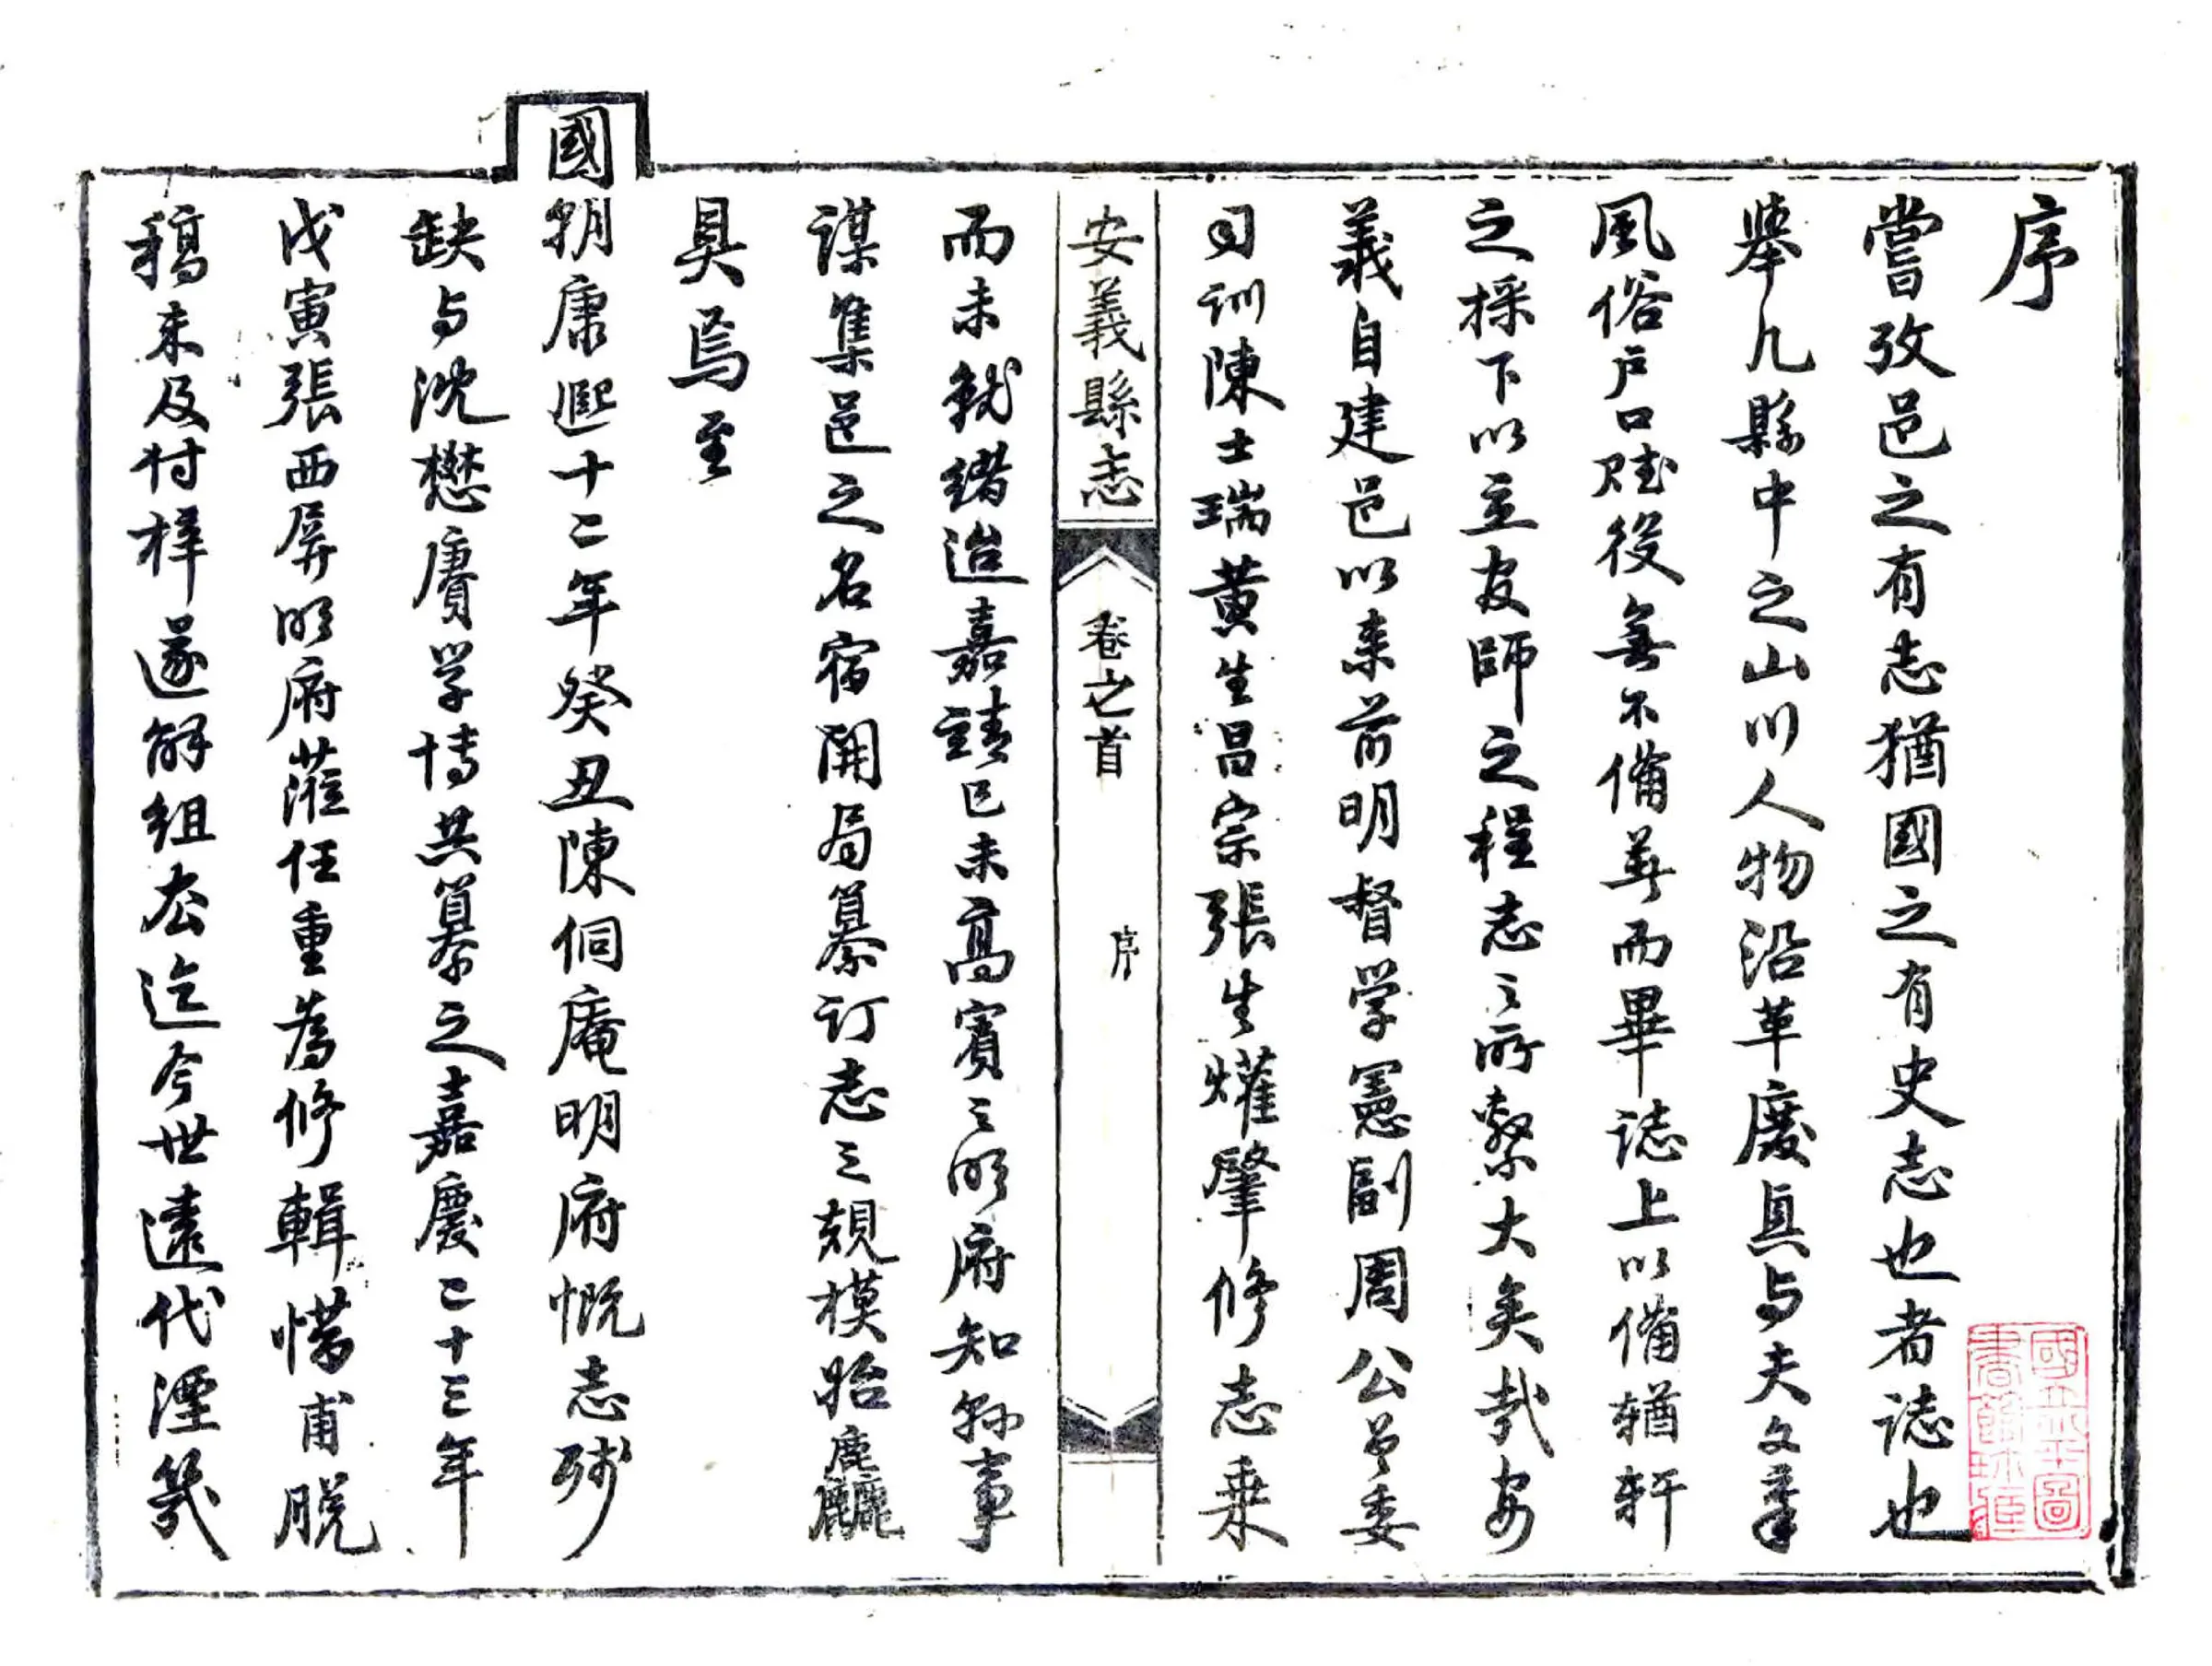 序
嘗攷邑之有志猶國之有史志也者誌也
舉凡縣中之山川人物沿革廢興与夫文章
風俗户口賦役無不備举而畢誌上以備輶軒
之採下以立友師之程志之所繫大矣哉安
義自建邑以來前明督学憲副周公呂委
司训陳士瑞黄生昌宗張生燿肇修志乗
安義縣志 卷之首 序
而未就绪迨嘉靖己未高賓之明府知縣事
謀集邑之名宿開局纂订志之規模貽麤
具焉至
國朝康熙十二年癸丑陳侗庵明府慨志殘
缺与沈懋賡学博共纂之嘉慶二十三年
戊寅張西屏明府蒞任重為修輯惜甫脱
稿未及付梓遂解组去迄今世遠代湮幾